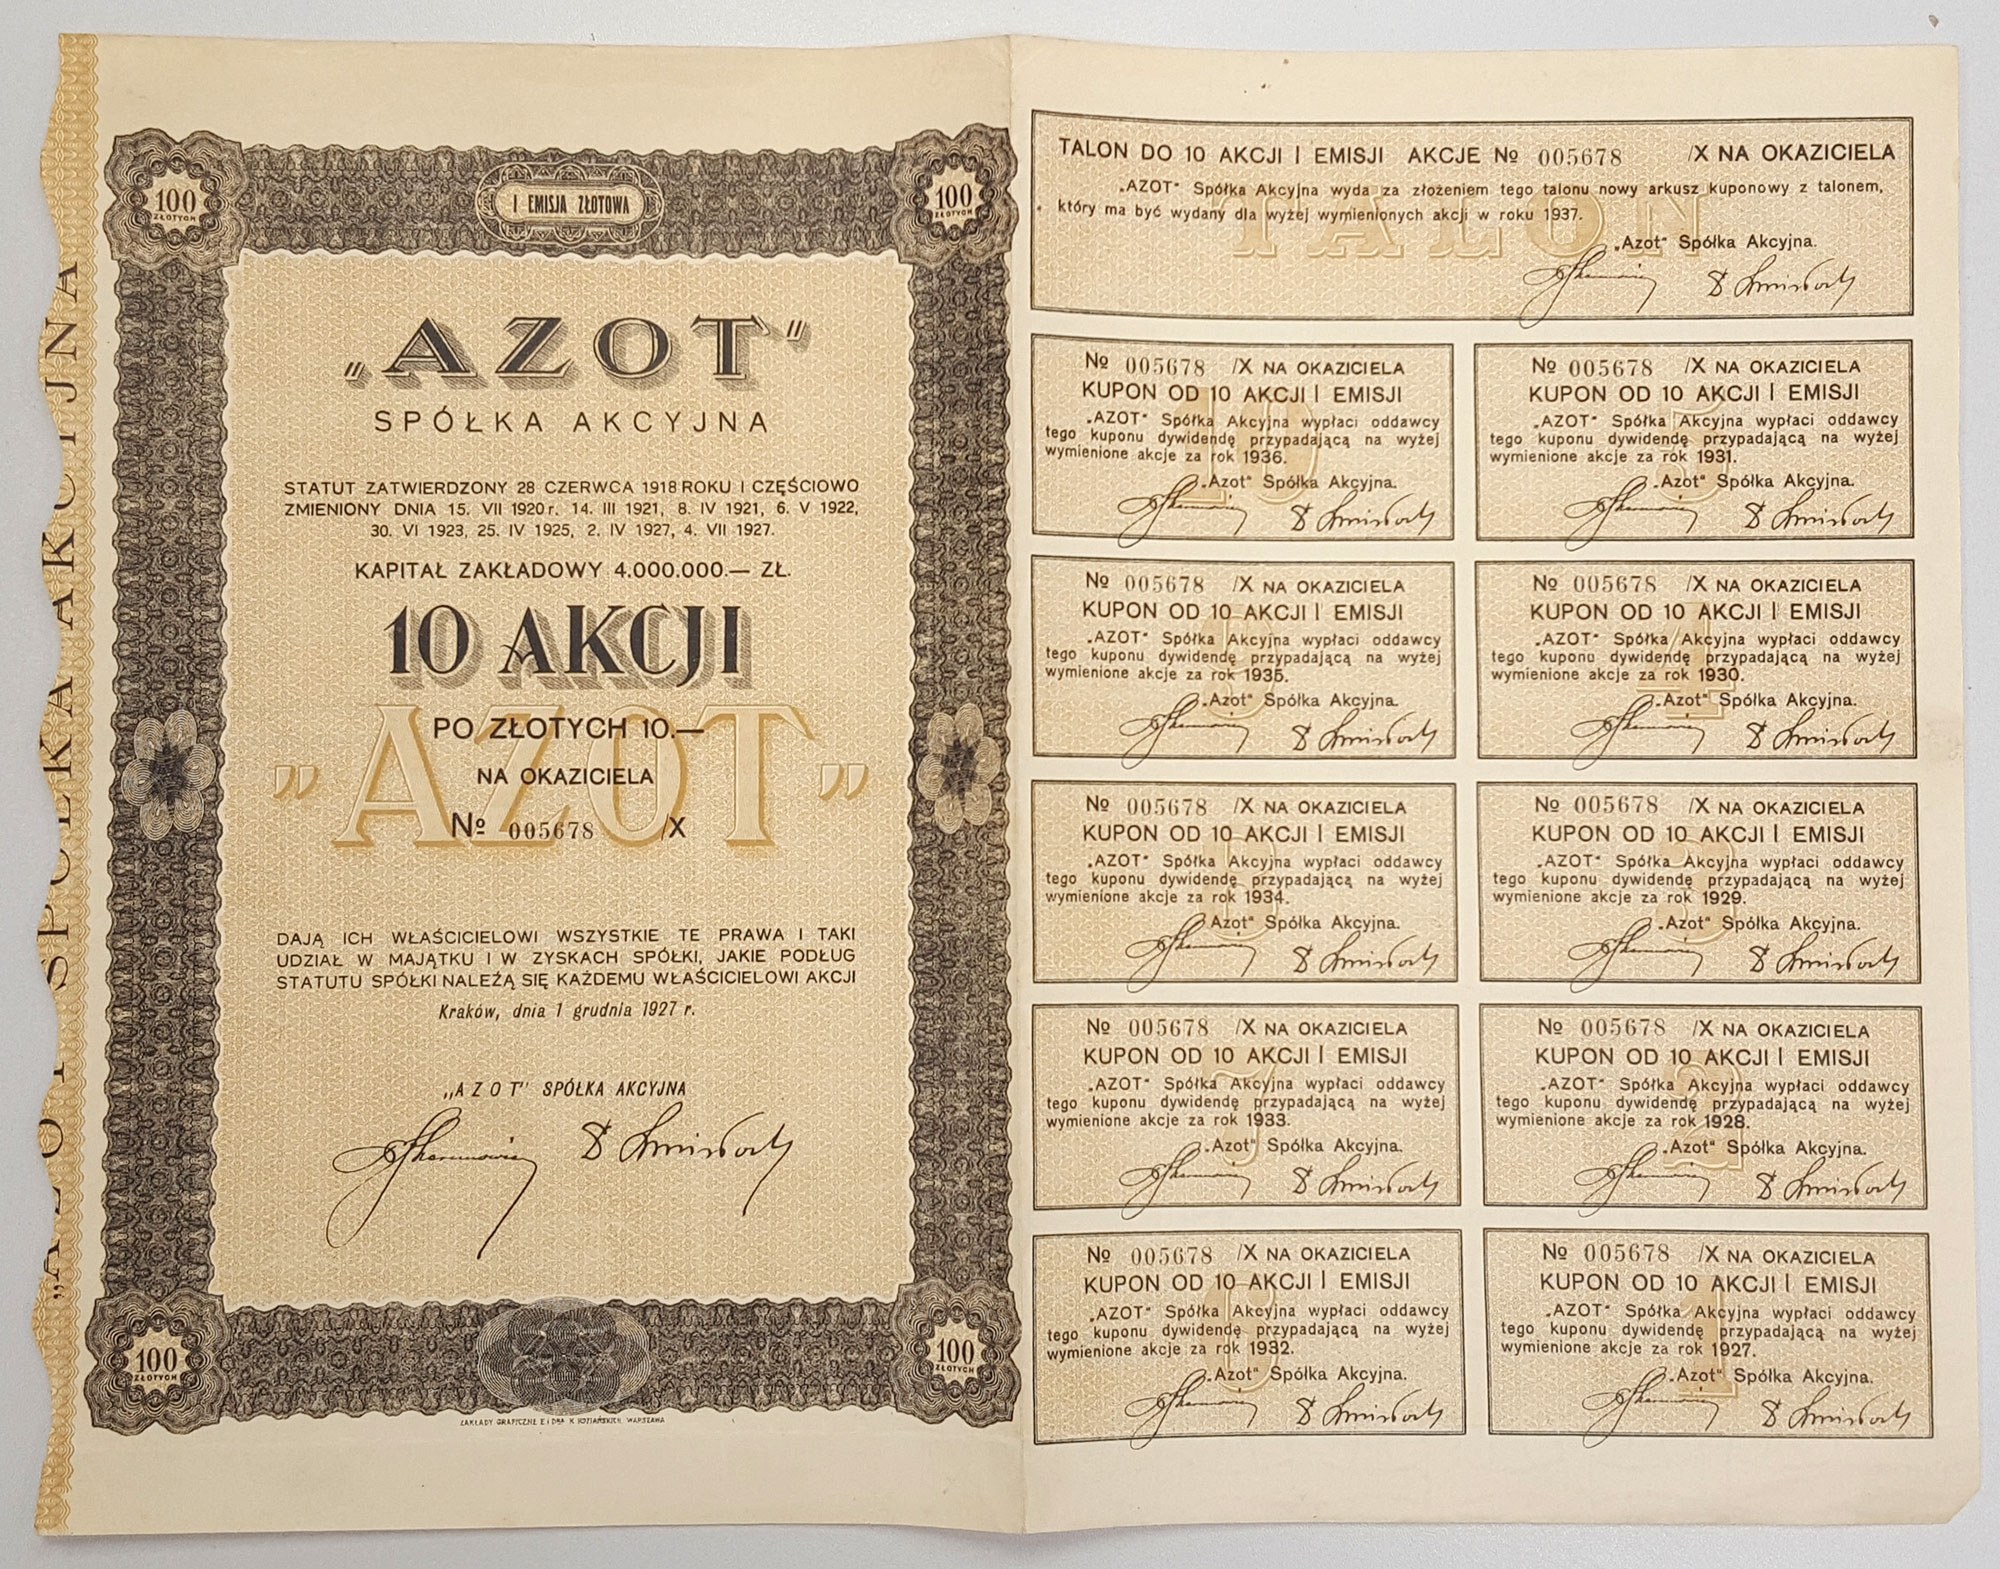 „AZOT" SPÓŁKA AKCYJNA
I EMISJA ZŁOTOWA
100
ZŁOTYCH
100
ZŁOTYCH
„AZOT"
SPÓŁKA AKCYJNA
STATUT ZATWIERDZONY 28 CZERWCA 1918 ROKU I CZĘŚCIOWO
ZMIENIONY DNIA 15. VII 1920 r. 14. III 1921, 8. IV 1921, 6. V 1922,
30. VI 1923, 25. IV 1925, 2. IV 1927, 4. VII 1927.
KAPITAŁ ZAKŁADOWY 4.000.000.— ZŁ.
10 AKCJI
„AZOT"
PO ZŁOTYCH 10.—
NA OKAZICIELA
№ 005678 /X
DAJĄ ICH WŁAŚCICIELOWI WSZYSTKIE TE PRAWA I TAKI
UDZIAŁ W MAJĄTKU I W ZYSKACH SPÓŁKI, JAKIE PODŁUG
STATUTU SPÓŁKI NALEŻĄ SIĘ KAŻDEMU WŁAŚCICIELOWI AKCJI
Kraków, dnia 1 grudnia 1927 r.
„AZOT" SPÓŁKA AKCYJNA
100
ZŁOTYCH
100
ZŁOTYCH
ZAKŁADY GRAFICZNE E. i DRA K. KOZIAŃSKICH, WARSZAWA
TALON DO 10 AKCJI I EMISJI AKCJE № 005678 /X NA OKAZICIELA
„AZOT" Spółka Akcyjna wyda za złożeniem tego talonu nowy arkusz kuponowy z talonem,
który ma być wydany dla wyżej wymienionych akcji w roku 1937.
TALON
„Azot" Spółka Akcyjna.
№ 005678 /X NA OKAZICIELA
KUPON OD 10 AKCJI I EMISJI
10
„AZOT" Spółka Akcyjna wypłaci oddawcy
tego kuponu dywidendę przypadającą na wyżej
wymienione akcje za rok 1936.
„Azot" Spółka Akcyjna.
№ 005678 /X NA OKAZICIELA
KUPON OD 10 AKCJI I EMISJI
5
„AZOT" Spółka Akcyjna wypłaci oddawcy
tego kuponu dywidendę przypadającą na wyżej
wymienione akcje za rok 1931.
„Azot" Spółka Akcyjna.
№ 005678 /X NA OKAZICIELA
KUPON OD 10 AKCJI I EMISJI
„AZOT" Spółka Akcyjna wypłaci oddawcy
tego kuponu dywidendę przypadającą na wyżej
wymienione akcje za rok 1935.
„Azot" Spółka Akcyjna.
№ 005678 /X NA OKAZICIELA
KUPON OD 10 AKCJI I EMISJI
4
„AZOT" Spółka Akcyjna wypłaci oddawcy
tego kuponu dywidendę przypadającą na wyżej
wymienione akcje za rok 1930.
„Azot" Spółka Akcyjna.
№ 005678 /X NA OKAZICIELA
KUPON OD 10 AKCJI I EMISJI
„AZOT" Spółka Akcyjna wypłaci oddawcy
tego kuponu dywidendę przypadającą na wyżej
wymienione akcje za rok 1934.
„Azot" Spółka Akcyjna.
№ 005678 /X NA OKAZICIELA
KUPON OD 10 AKCJI I EMISJI
3
„AZOT" Spółka Akcyjna wypłaci oddawcy
tego kuponu dywidendę przypadającą na wyżej
wymienione akcje za rok 1929.
„Azot" Spółka Akcyjna.
№ 005678 /X NA OKAZICIELA
KUPON OD 10 AKCJI I EMISJI
7
„AZOT" Spółka Akcyjna wypłaci oddawcy
tego kuponu dywidendę przypadającą na wyżej
wymienione akcje za rok 1933.
„Azot" Spółka Akcyjna.
№ 005678 /X NA OKAZICIELA
KUPON OD 10 AKCJI I EMISJI
2
„AZOT" Spółka Akcyjna wypłaci oddawcy
tego kuponu dywidendę przypadającą na wyżej
wymienione akcje za rok 1928.
„Azot" Spółka Akcyjna.
№ 005678 /X NA OKAZICIELA
KUPON OD 10 AKCJI I EMISJI
6
„AZOT" Spółka Akcyjna wypłaci oddawcy
tego kuponu dywidendę przypadającą na wyżej
wymienione akcje za rok 1932.
„Azot" Spółka Akcyjna.
№ 005678 /X NA OKAZICIELA
KUPON OD 10 AKCJI I EMISJI
1
„AZOT" Spółka Akcyjna wypłaci oddawcy
tego kuponu dywidendę przypadającą na wyżej
wymienione akcje za rok 1927.
„Azot" Spółka Akcyjna.